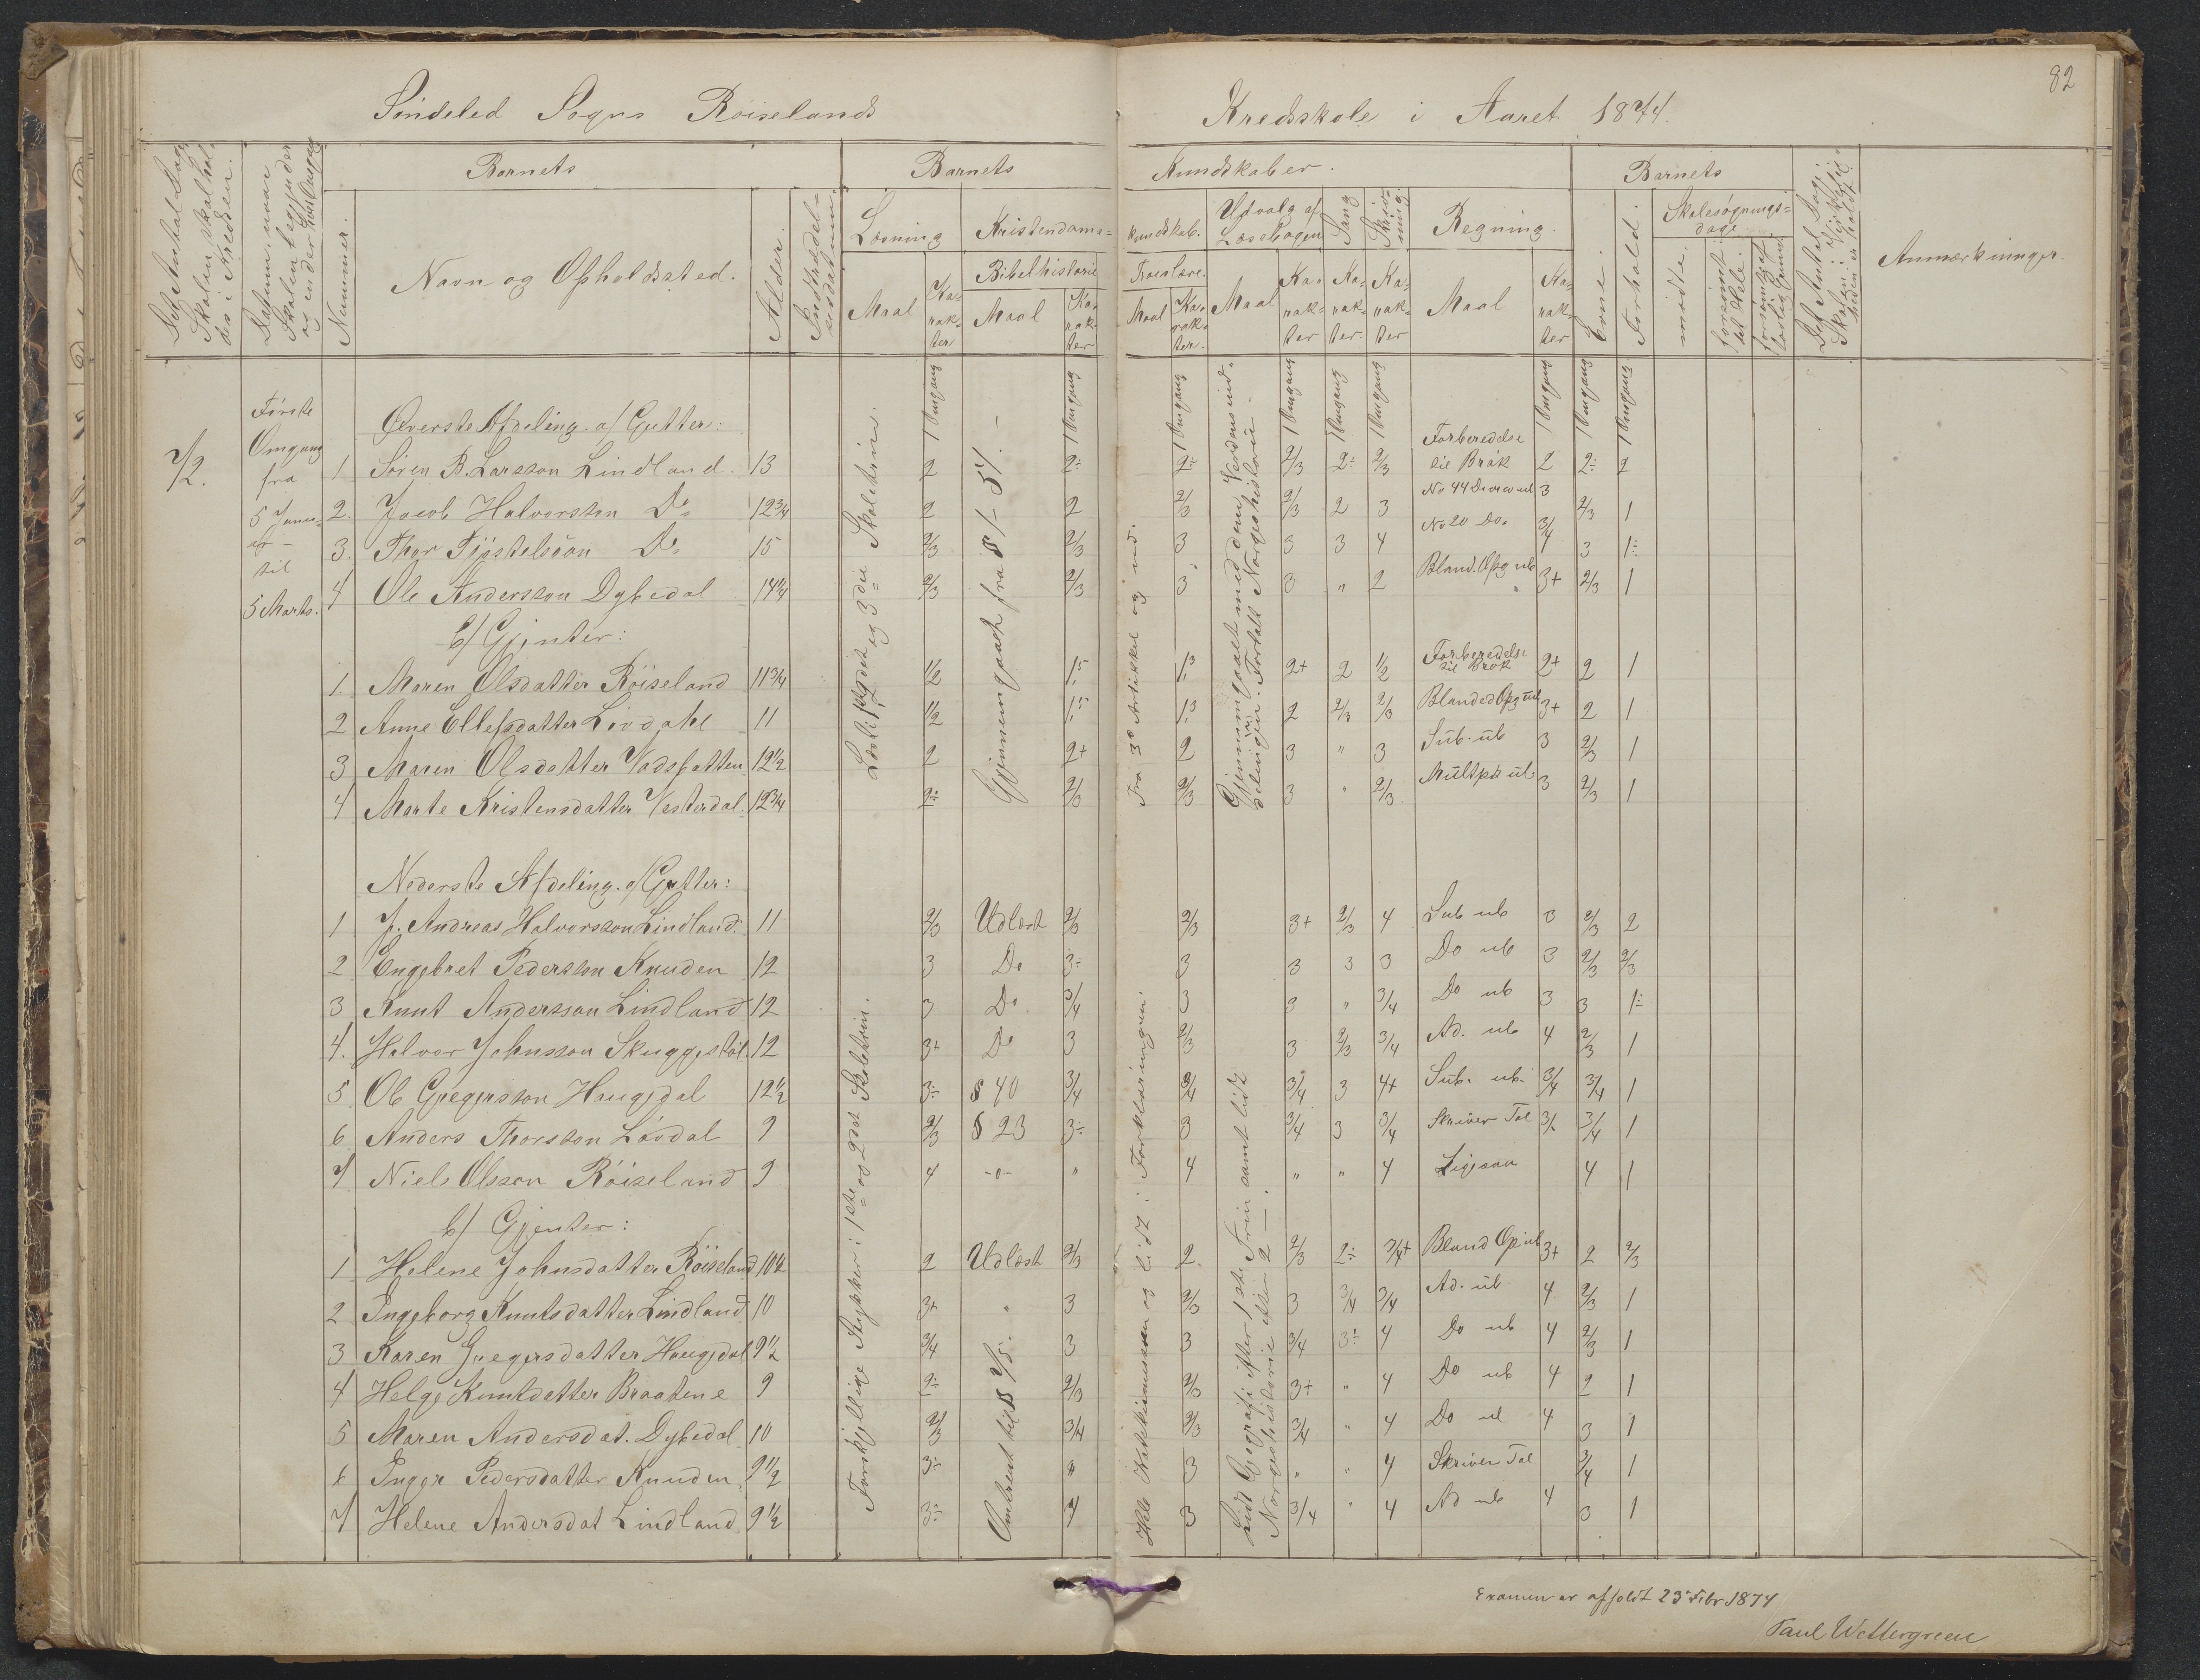 82
Söndeled Sogns Röiselands Kredsskole i Aaret 1874.
Det Antal Dage Skolen skal holdes i Kredsen.
Datum, naar Skolen begynder og ender hver Omgang
Nummer.
Barnets
Navn og Opholdssted.
Alder.
Indtrædelsesdatum.
Barnets Kundskaber.
Læsning
Maal
Karakter
Kristendomskundskab.
Bibelhistorie
Maal
Karakter
Troeslære.
Maal
Karakter.
Udvalg af Læsebogen
Maal
Karakter
Sang
Karakter.
Skrivning.
Karakter
Regning.
Maal
Karakter
Barnets
Evne.
Forhold.
Skolesøgningsdage
mödte.
forsömt det Hele.
forsömt af lovlig Grund
Det Antal Dage Skolen i Virkeligheden er holdt.
Anmærkninger.
1 Omgang 1 Omgang 1 Omgang 1 Omgang 1 Omgang 1 Omgang 1 Omgang 1 Omgang 1 Omgang
7/2.
Første
Omgang
fra
5 Janu-
ar –
til
5 Marts.
Læst i 1ste, 2det og 3die Skoletrin.
Gjennemgaaet fra § 1 – 57. –
Fra 3e Artikkel og ud.
Gjennemgaaet med dem Verdensind-
delingen. Fortalt Norgeshistorie –
Øverste Afdeling. a/ Gutter:
1 Sören B. Larsson Lindland. 13 2 2÷ 2÷ 2/3 2÷ 2/3 Forberedelse til Brök 2 2÷ 2
2. Jacob Halvorsson Do 12 3/4 2 2 2/3 2/3 2 3 No 44 Divis ub 3 2/3 1
3. Thor Tjöstelsön Do 15 2/3 2/3 3 3 3 4 No 20 Do. 3/4 3 1÷
4 Ole Andersson Dybedal 14 1/4 2/3 2/3 3 3 " 2 Bland. Opg ub 3+ 2/3 1
b/ Gjenter:
1. Maren Olsdatter Röiseland 11 3/4 1/2 1.5 1.3 2+ 2 1/2 Forberedelse til Brök 2+ 2 1
2 Anne Ellefsdatter Lövdahl 11 1/2 1.5 1.3 2 2/3 2/3 Blanded Opg ub 3+ 2 1
3 Maren Olsdatter Vadsbatten 12 1/2 2 2+ 2 3 " 3 Sub. ub 3 2/3 1
4 Marte Kristensdatter Vesterdal. 12 3/4 2÷ 2/3 2/3 3 " 2/3. Multpk ub 3 2/3 1
Nederste Afdeling. a/ Gutter:
Forskjellige Stykker i 1ste og 2det Skoletrin.
Hele Katekismusen og lidt i Forklaringen.
Lidt Geografi efter 1ste Trin samt lidt
Norgeshistorie efter 2 –.
1 J. Andreas Halvorsson Lindland. 11 2/3 Udlæst 2/3 2/3 3+ 2/3 4 Sub ub 3 2/3 2
2 Engebret Pedersson Knuden 12 3 Do 3÷ 3 3 3 3 Do ub 3 2/3 2/3
3 Knut Andersson Lindland 12 3 Do 3/4 3 3 " 3/4 Do ub 3 3 1÷
4. Halvor Johnsson Skuggestöl. 12 3+ Do 3 2/3 3 2/3 3/4 Ad. ub 4 2/3 1
5 Ole Gregersson Haugedal 12 1/2 3÷ § 40 3/4 3/4 3/4 3 4+ Sub. ub. 3/4 3/4 1
6 Anders Thorsson Lövdal 9 2/3 § 23 3÷ 3 3/4 3 3/4 Skriver Tal 3/4 3/4 1
7 Niels Olsson Röiseland 9 4 -o- " 4 " " 4 Ligesaa 4 1
b/ Gjenter:
1 Helene Johnsdatter Röiseland 10 1/2 2 Udlæst 2/3 2. 2/3 2÷ 3/4+ Bland Op ub 3+ 2 2/3
2 Ingeborg Knutsdatter Lindland 10 3+ " 3 2/3 3 3/4 3/4 Ad. ub 4 2/3 1
Omtrent til § 7/5.
3 Karen Gregersdatter Haugedal 9 1/2 3/4 3 3 3/4 3÷ 4 Do ub 4 2/3 1
4 Helge Knutdatter Braatene 9 2÷ 2/3 2/3 3+ " 4 Do ub 4 2 1
5 Maren Andersdat. Dybedal 10 2/3 3/4 2/3 3/4 " 4 Do ub 4 3 1
6 Inger Pedersdatter Knuden. 9 1/2 3÷ " 3 " " 4 Skriver Tal 3/4 1
7 Helene Andersdat Lindland. 9 1/2 3÷ 4 3 3/4 " 4 Ad ub 4 3 1
Examen er afholdt 25 Febr 1874
Paul Wettergreen